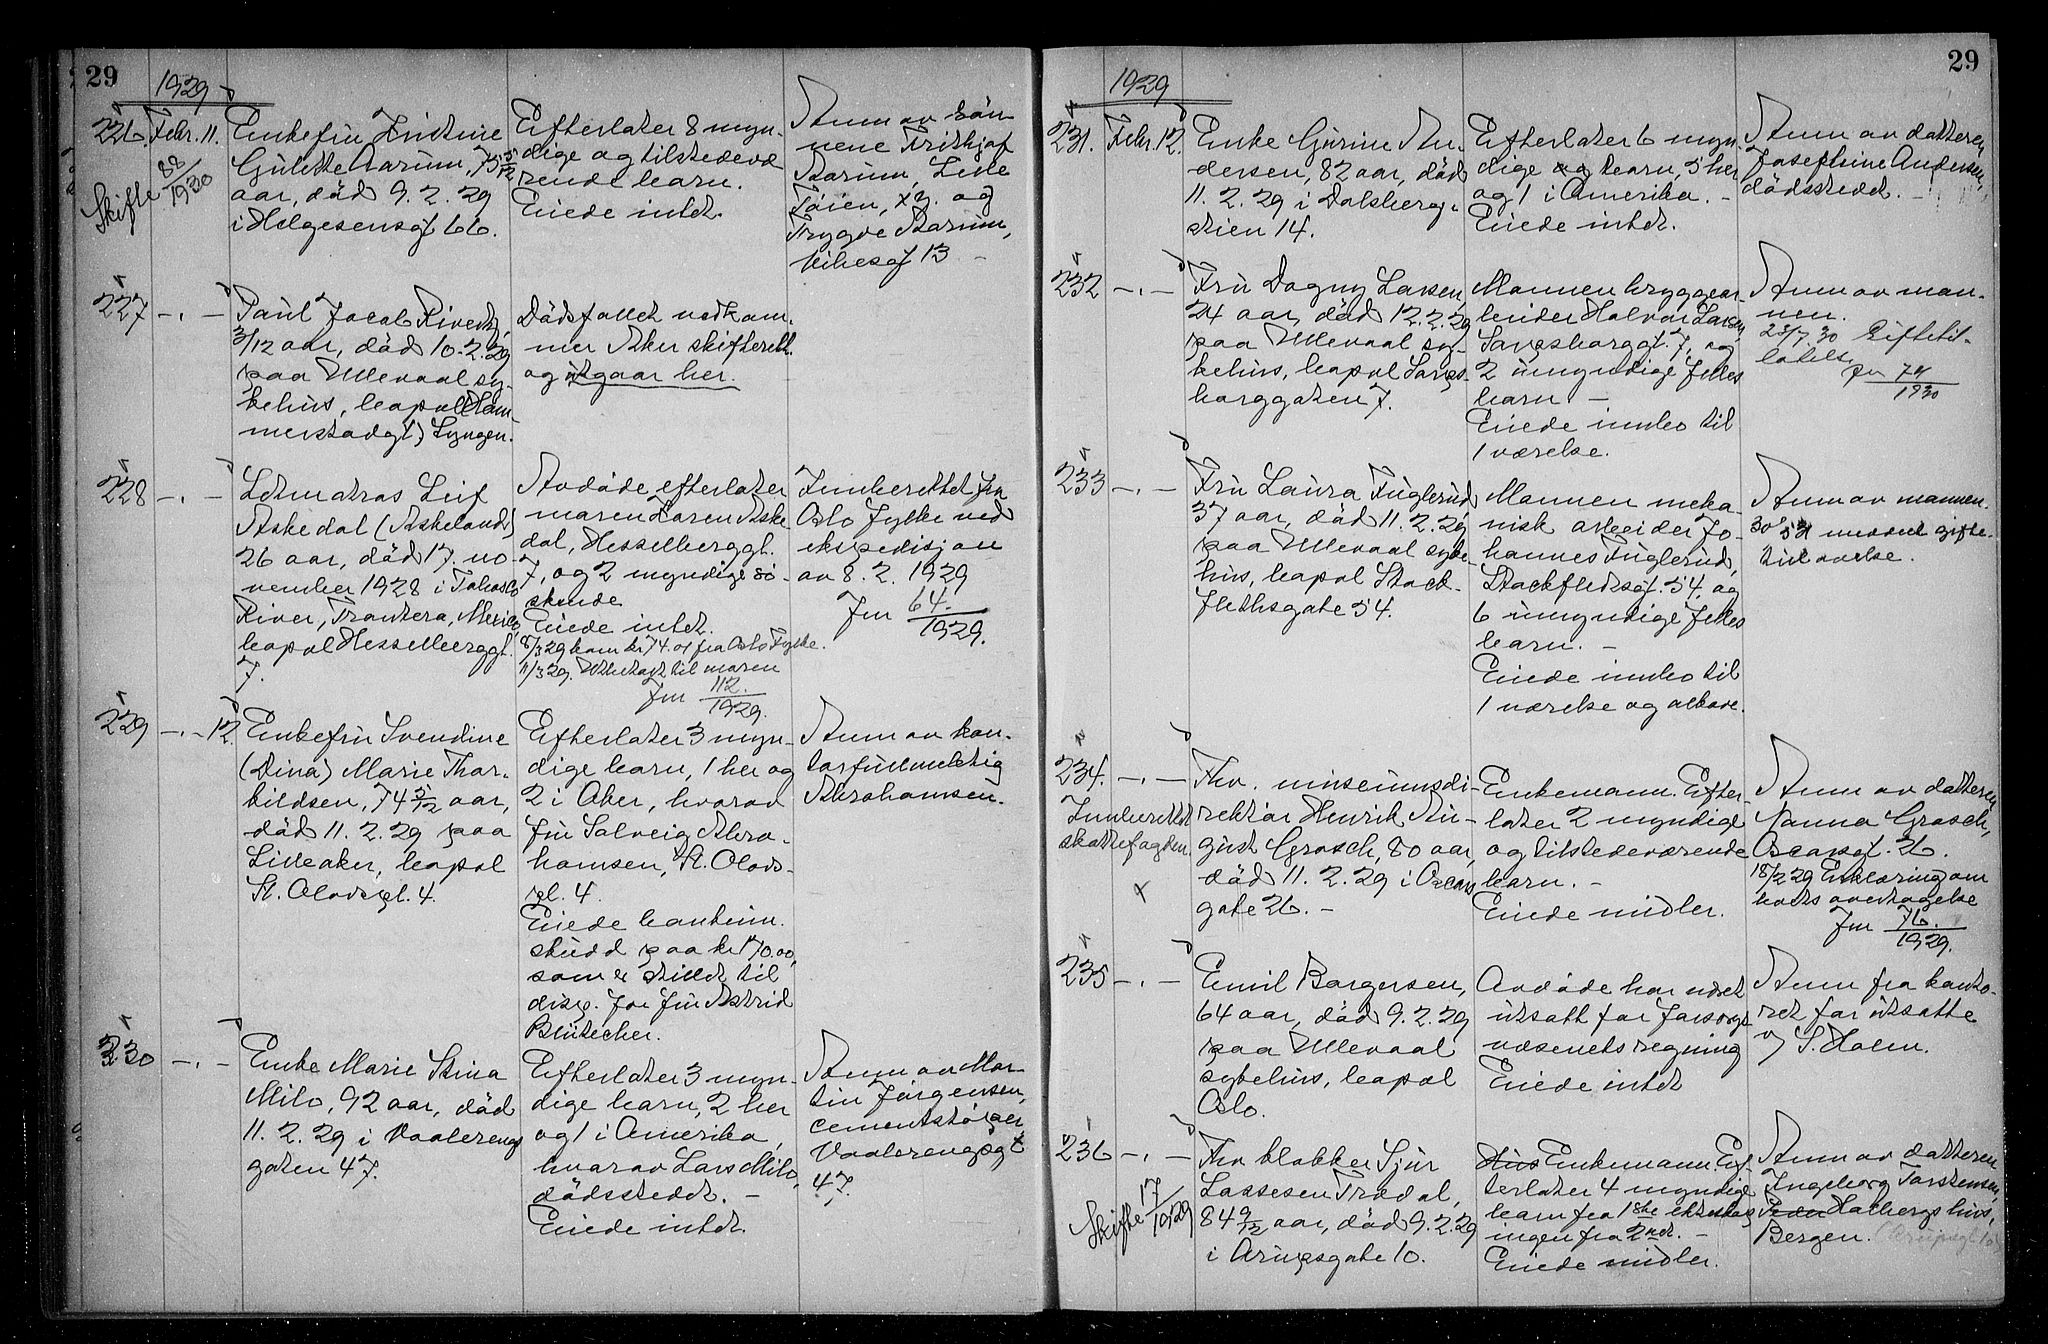 29
1929
226. Febr. 11.
Skifte 88/1930
Enkefru Kristine
Gulette Aarum, 75 5/12
aar, död 9. 2. 29
i Helgesensgt 66.
Efterlater 8 myn-
dige og tilstedevæ
rende barn.
Eiede intet.
Anm av sön-
nene Frithjof
Aarum, Lille
Töien, xy. og
Trygve Aarum,
Vibesgt 13 -
227 -.-
Paul Jacob
3/12 aar, död 10. 2. 29
paa Ullevaal sy-
kehus, bopæl (Ham
merstadgt)
Dödsfallet vedkom-
mer Aker skifterett
og utgaar her.
228 -.-
Letmatros Leif
Askedal (Askeland)
26 aar, död 17. no-
vember 1928 i
River, Frontera, Mexico,
bopæl Hesselberggt.
7.
Avdöde efterlater
moren Karen Aske
dal, Hesselberggt.
7, og 2 myndige sö-
skende
Eiede intet.
8/3 29 kom kr 74.01 fra Oslo Fylke.
11/3 29. Utbetalt til moren
Jnr 112./1929.
Innberettet fra
Oslo fylke ved
ekspedisjon
av 8. 2. 1929
Jnr 64./1929.
229 -.- 12.
Enkefru Svendine
(Dina) Marie Thor-
kildsen, 74 5/12 aar,
död 11. 2. 29 paa
Lilleaker, bopæl
St. Olavspl. 4.
Efterlater 3 myn-
dige barn, 1 her og
2 i Aker, hvorav
fru Solveig Abra-
hamsen, St. Olavs-
pl. 4.
Eiede bankinn-
skudd paa kr 170.00,
som er stillet til
disp. for fru Astrid
Blütecher.
Anm av kon-
torfullmektig
Abrahamsen.
230 -.-
Enke Marie Stina
Milo, 92 aar, död
11. 2. 29 i Vaalereng
gaten 47.
Efterlater 3 myn-
dige barn, 2 her
og 1 i Amerika,
hvorav Lars Milo,
dödsstedet. -
Eiede intet.
Anm av Mar-
tin Jörgensen,
cementstöper
Vaalerenggt
47.
29
1929
231. Febr. 12.
Enke Gurine An-
dersen, 82 aar, död
11. 2. 29 i Dalsberg-
stien 14.
Efterlater 6 myn-
dige og barn, 5 her
og 1 i Amerika. -
Eiede intet.
Anm av datteren
Josephine Andersen,
dödsstedet. -
232 -.-
Fru Dagny Larsen,
24 aar, död 12. 2. 29
paa Ullevaal sy-
kehus, bopæl Sarps-
borggaten 7.
Mannen bryggear-
beider Halvor Larsen,
Sarpsborggt. 7, og
2 umyndige felles
barn -
Eiede innbo til
1 værelse.
Anm av man-
nen.
23/7. 30 Giftetil-
latelse
Jnr 74/1930
233 -.-
Fru Laura Fuglerud
37 aar, död 11. 2. 29
paa Ullevaal syke-
hus, bopæl Stock-
flethsgate 54.
Mannen meka-
nisk arbeider Jo-
hannes Fuglerud,
Stockflethsgt. 54. og
6 umyndige felles
barn. -
Eiede innbo til
1 værelse og alkove.
Anm av mannen.
gifte-
tillatelse.
234. -.-
Innberettet
skattefogden.
x
Fhv. museumsdi
rektör Henrik Au-
gust Grosch, 80 aar,
död 11. 2. 29 i Oscars
gate 26. -
Enkemann. Efter-
later 2 myndige
og tilstedeværende
barn. -
Eiede midler.
Anm av datteren
Nanna Grosch,
Oscarsgt. 26.
18/2 29 Erklæring om
boets overtagelse
Jnr 76./1929.
235 -.-
Emil Borgersen,
64 aar, död 9. 2. 29
paa Ullevaal
sykehus, bopæl
Oslo.
Avdöde har været
utsatt for forsorgs
væsenets regning
Eiede intet
Anm fra konto-
ret for utsatte
v/ S. Holm.
236 -.-
Skifte 17/1929
Fhv klokker Sjur
Lassesen Trædal,
84 9/12 aar, död 9. 2. 29
i Arupsgate 10.
Hus Enkemann. Ef-
terlater 4 myndige
barn fra 1ste ekteskap
ingen fra 2net. -
Eiede midler.
Anm av datteren
Ingeborg Torstensen,
Holbergs hus,
Bergen. (Arupsgt 10)